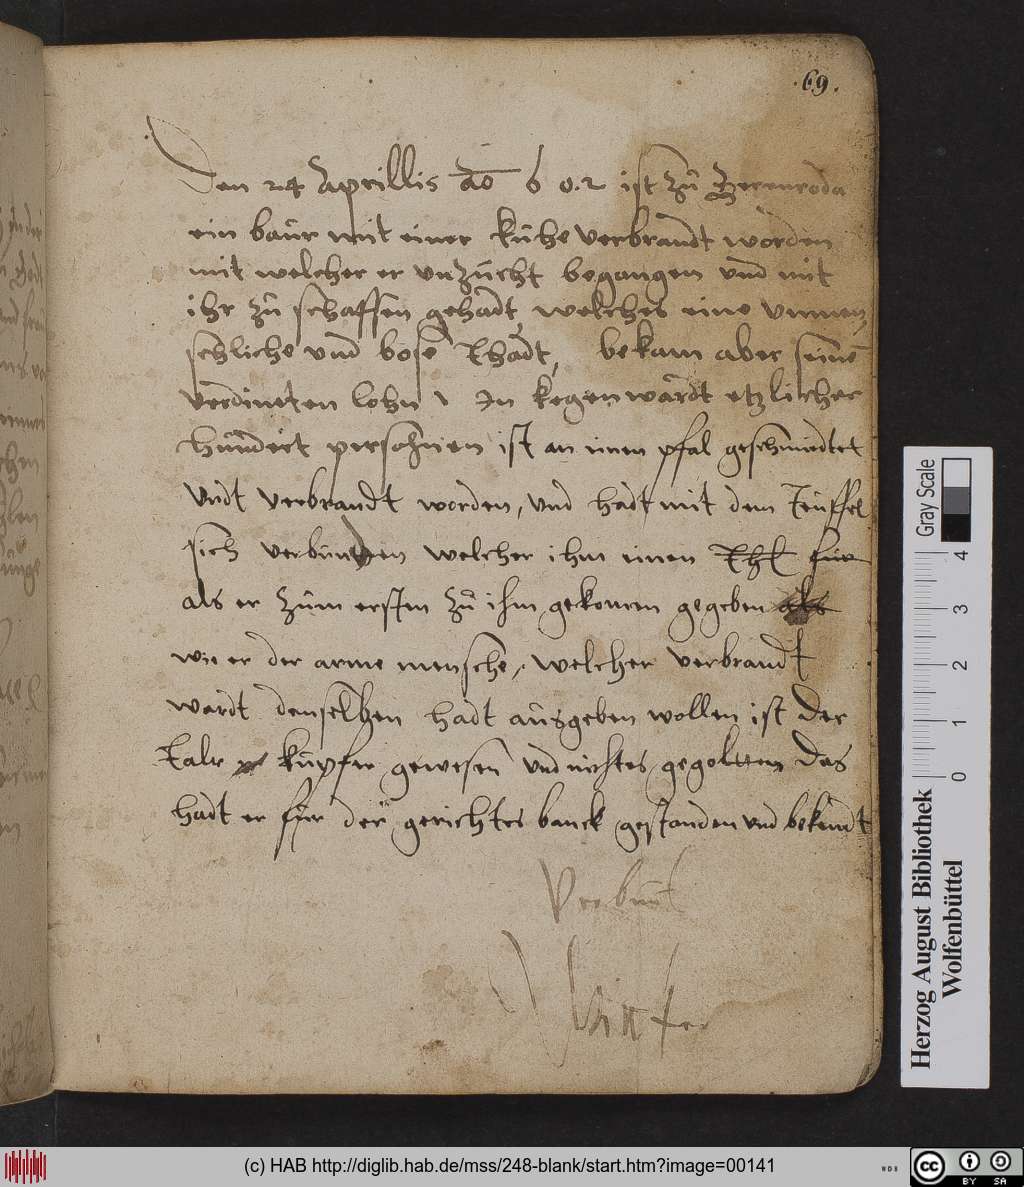 .69.
Den 24 Aprillis ao 6 0.2 ist zu Zerenroda
ein baur mit einer kuhe verbrandt worden
mit welcher er unzucht begangen und mit
ihr zu schaffen gehadt, welches eine unmen
schliche und bose thadt, bekam aber seine
verdineten lohn, In kegenwardt etzlicher
hundert persohnen ist an einen pfal geschmiedtet
undt verbrandt worden, und hadt mit dem teuffel
sich verbunden welcher ihm einen thl für
als er zum ersten zu ihm gekomen gegeben als
wie er der arme mensche, welcher verbrandt
wardt denselben hadt ausgeben wollen ist der
taler kupfer gewesen und nichtes gegoltten das
hadt er für der gerichtes banck gestanden und bekendt
Gray Scale
4 3 2 1 0
Herzog August Bibliothek
Wolfenbüttel
(c) HAB http://diglib.hab.de/mss/248-blank/start.htm?image=00141
WDB
cc BY SA